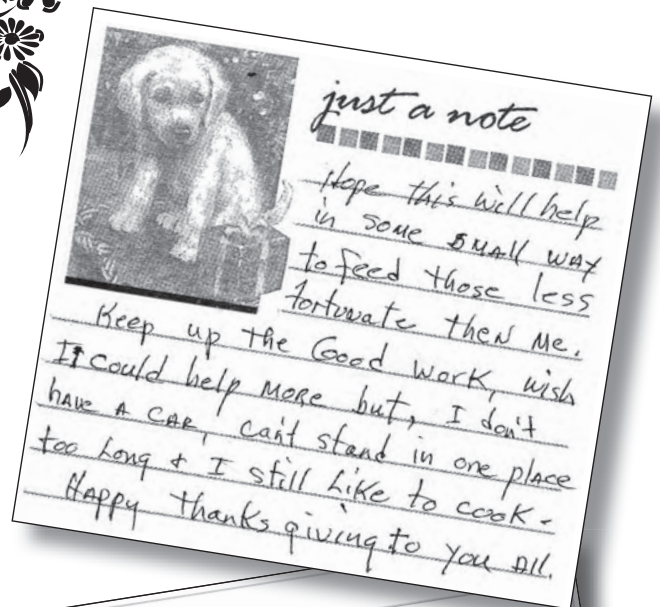 just a note
Hope this will help
in some small way
to feed those less
fortunate then me.
Keep up the Good work, wish
I could help more but, I don't
have a car, can't stand in one place
too long & I still like to cook -
Happy thanks giving to you all.